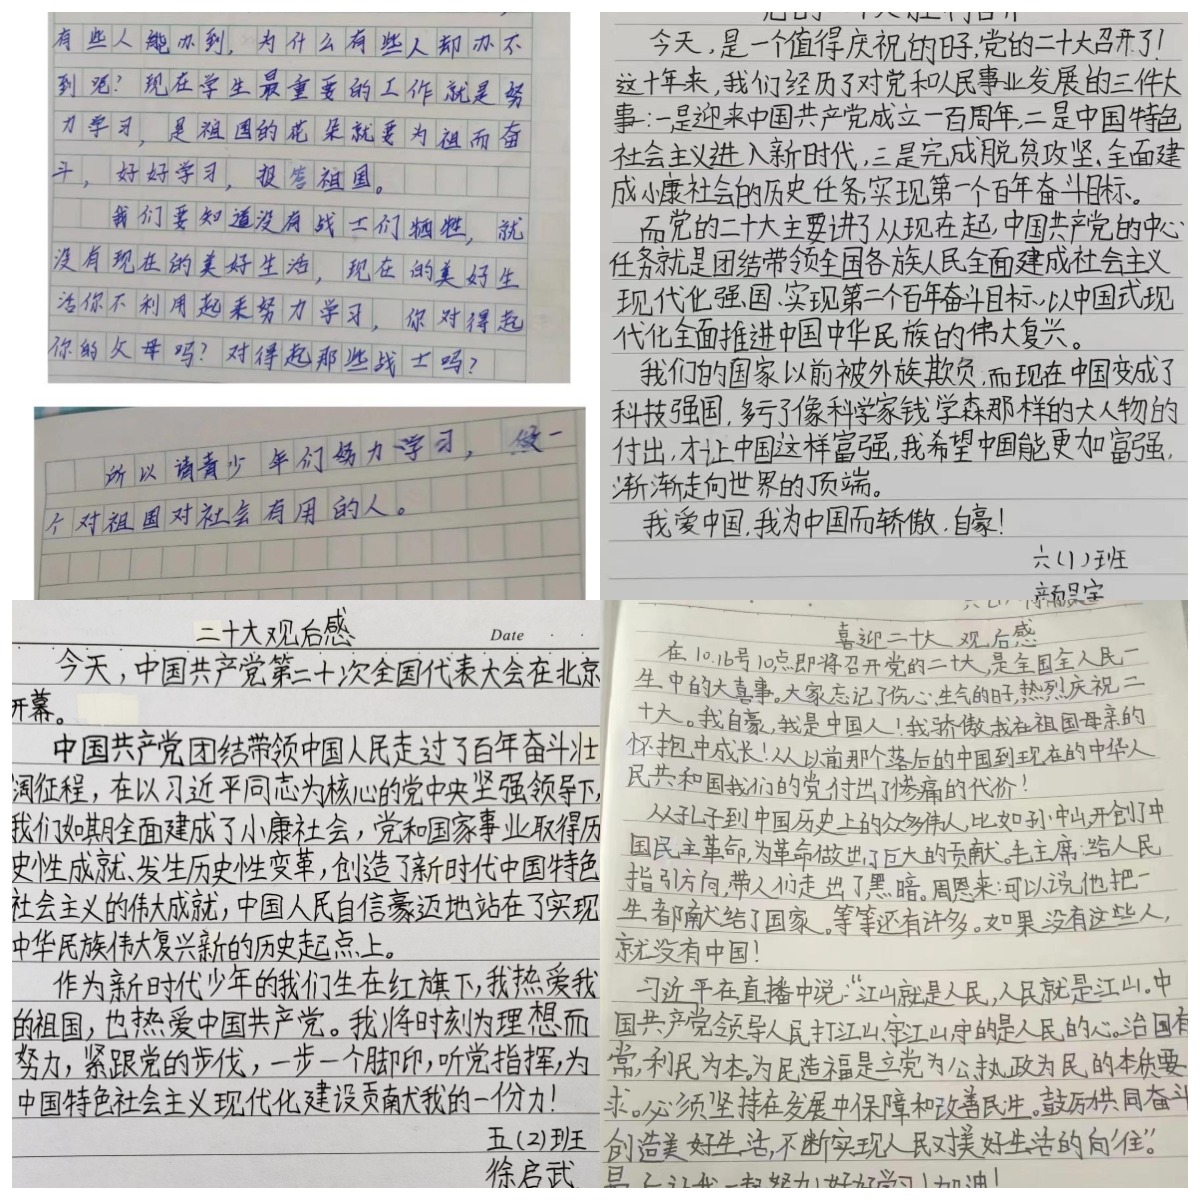 有些人能办到，为什么有些人却办不
到呢？现在学生最重要的工作就是努
力学习，是祖国的花朵就要为祖而奋
斗，好好学习，报答祖国。
我们要知道没有战士们牺牲，就
没有现在的美好生活，现在的美好生
活你不利用起来努力学习，你对得起
你的父母吗？对得起那些战士吗？
所以请青少年们努力学习，做一
个对祖国对社会有用的人。
今天，是一个值得庆祝的日子，党的二十大召开了！
这十年来，我们经历了对党和人民事业发展的三件大
事：一是迎来中国共产党成立一百周年，二是中国特色
社会主义进入新时代，三是完成脱贫攻坚、全面建
成小康社会的历史任务，实现第一个百年奋斗目标。
而党的二十大主要讲了从现在起，中国共产党的中心
任务就是团结带领全国各族人民全面建成社会主义
现代化强国、实现第二个百年奋斗目标，以中国式现
代化全面推进中国中华民族的伟大复兴。
我们的国家以前被外族欺负，而现在中国变成了
科技强国，多亏了像科学家钱学森那样的大人物的
付出，才让中国这样富强，我希望中国能更加富强，
渐渐走向世界的顶端。
我爱中国，我为中国而轿傲，自豪！
六(1)班
二十大观后感
Date
今天，中国共产党第二十次全国代表大会在北京
开幕。
中国共产党团结带领中国人民走过了百年奋斗壮
阔征程，在以习近平同志为核心的党中央坚强领导下，
我们如期全面建成了小康社会，党和国家事业取得历
史性成就、发生历史性变革，创造了新时代中国特色
社会主义的伟大成就，中国人民自信豪迈地站在了实现
中华民族伟大复兴新的历史起点上。
作为新时代少年的我们生在红旗下，我热爱我
的祖国，也热爱中国共产党。我将时刻为理想而
努力，紧跟党的步伐，一步一个脚印，听党指挥，为
中国特色社会主义现代化建设贡献我的一份力！
五(2)班
徐启武
喜迎二十大 观后感
在10.16号10点即将召开党的二十大，是全国全人民一
生中的大喜事。大家忘记了伤心、生气的日子，热烈庆祝二
十大。我自豪，我是中国人！我骄傲我在祖国母亲的
怀抱中成长！从以前那个落后的中国到现在的中华人
民共和国我们的党付出了惨痛的代价！
从孔子到中国历史上的众多伟人，比如孙中山，开创了中
国民主革命，为革命做出了巨大的贡献。毛主席：给人民
指引方向，带人们走出了黑暗。周恩来：可以说他把一
生都献给了国家。等等还有许多。如果没有这些人，
就没有中国！
习近平在直播中说：“江山就是人民，人民就是江山。中
国共产党领导人民打江山、守江山，守的是人民的心。治国有
常，利民为本。为民造福是立党为公执政为民的本质要
求。必须坚持在发展中保障和改善民生。鼓励共同奋斗
创造美好生活，不断实现人民对美好生活的向往”